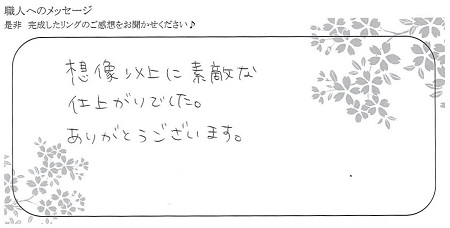 職人へのメッセージ
是非 完成したリングのご感想をお聞かせください♪
想像以上に素敵な
仕上がりでした。
ありがとうございます。